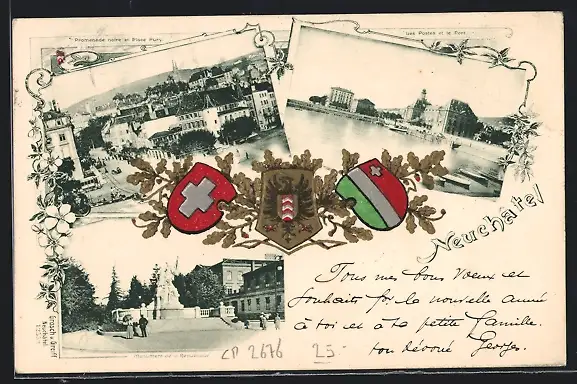 Promenade noire et Place Pury.
Les Postes et le Port.
Neuchâtel
Tous mes bons voeux et
souhaits for la nouvelle année
à toi et à ta petite famille.
ton dévoué Georges.
Monument de la République
CP 2676 25-